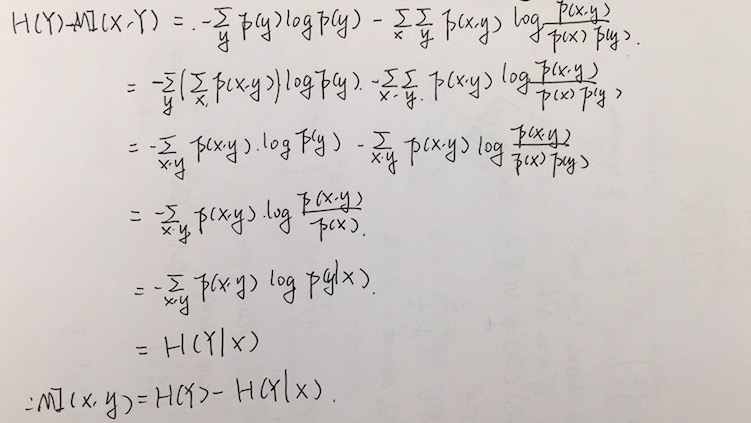 H(Y)-MI(X,Y) = -∑_y p(y) log p(y) - ∑_x ∑_y p(x,y) log p(x,y)/(p(x) p(y)).
= -∑_y (∑_x p(x,y)) log p(y) - ∑_x ∑_y p(x,y) log p(x,y)/(p(x) p(y))
= -∑_{x,y} p(x,y) · log p(y) - ∑_{x,y} p(x,y) log p(x,y)/(p(x) p(y))
= -∑_{x,y} p(x,y) · log p(x,y)/p(x).
= -∑_{x,y} p(x,y) log p(y|x).
= H(Y|x)
∴ MI(x,y) = H(Y) - H(Y|x).